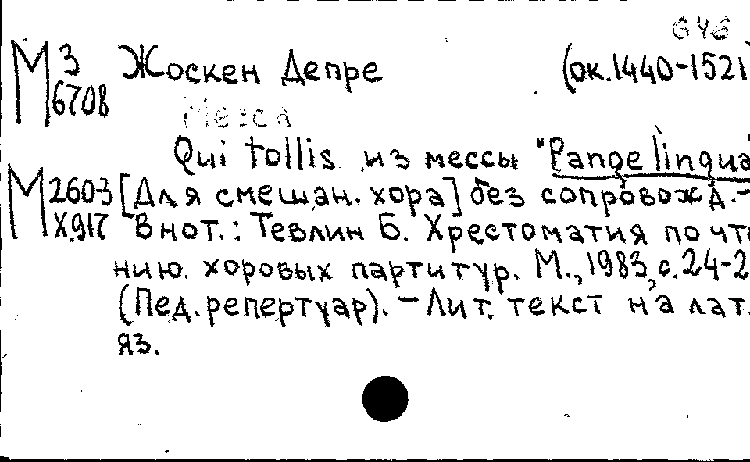 646
М 3 6708 Жоскен Депре (ок. 1440-1521
Месса
Qui tollis из мессы "Pange lingua"
М 2603 Х.917 [Для смешан. хора] без сопровожд.-
В нот.: Тевлин Б. Хрестоматия по чте
нию хоровых партитур. М., 1983, с. 24-2
(Пед. репертуар). - Лит. текст на лат.
яз.